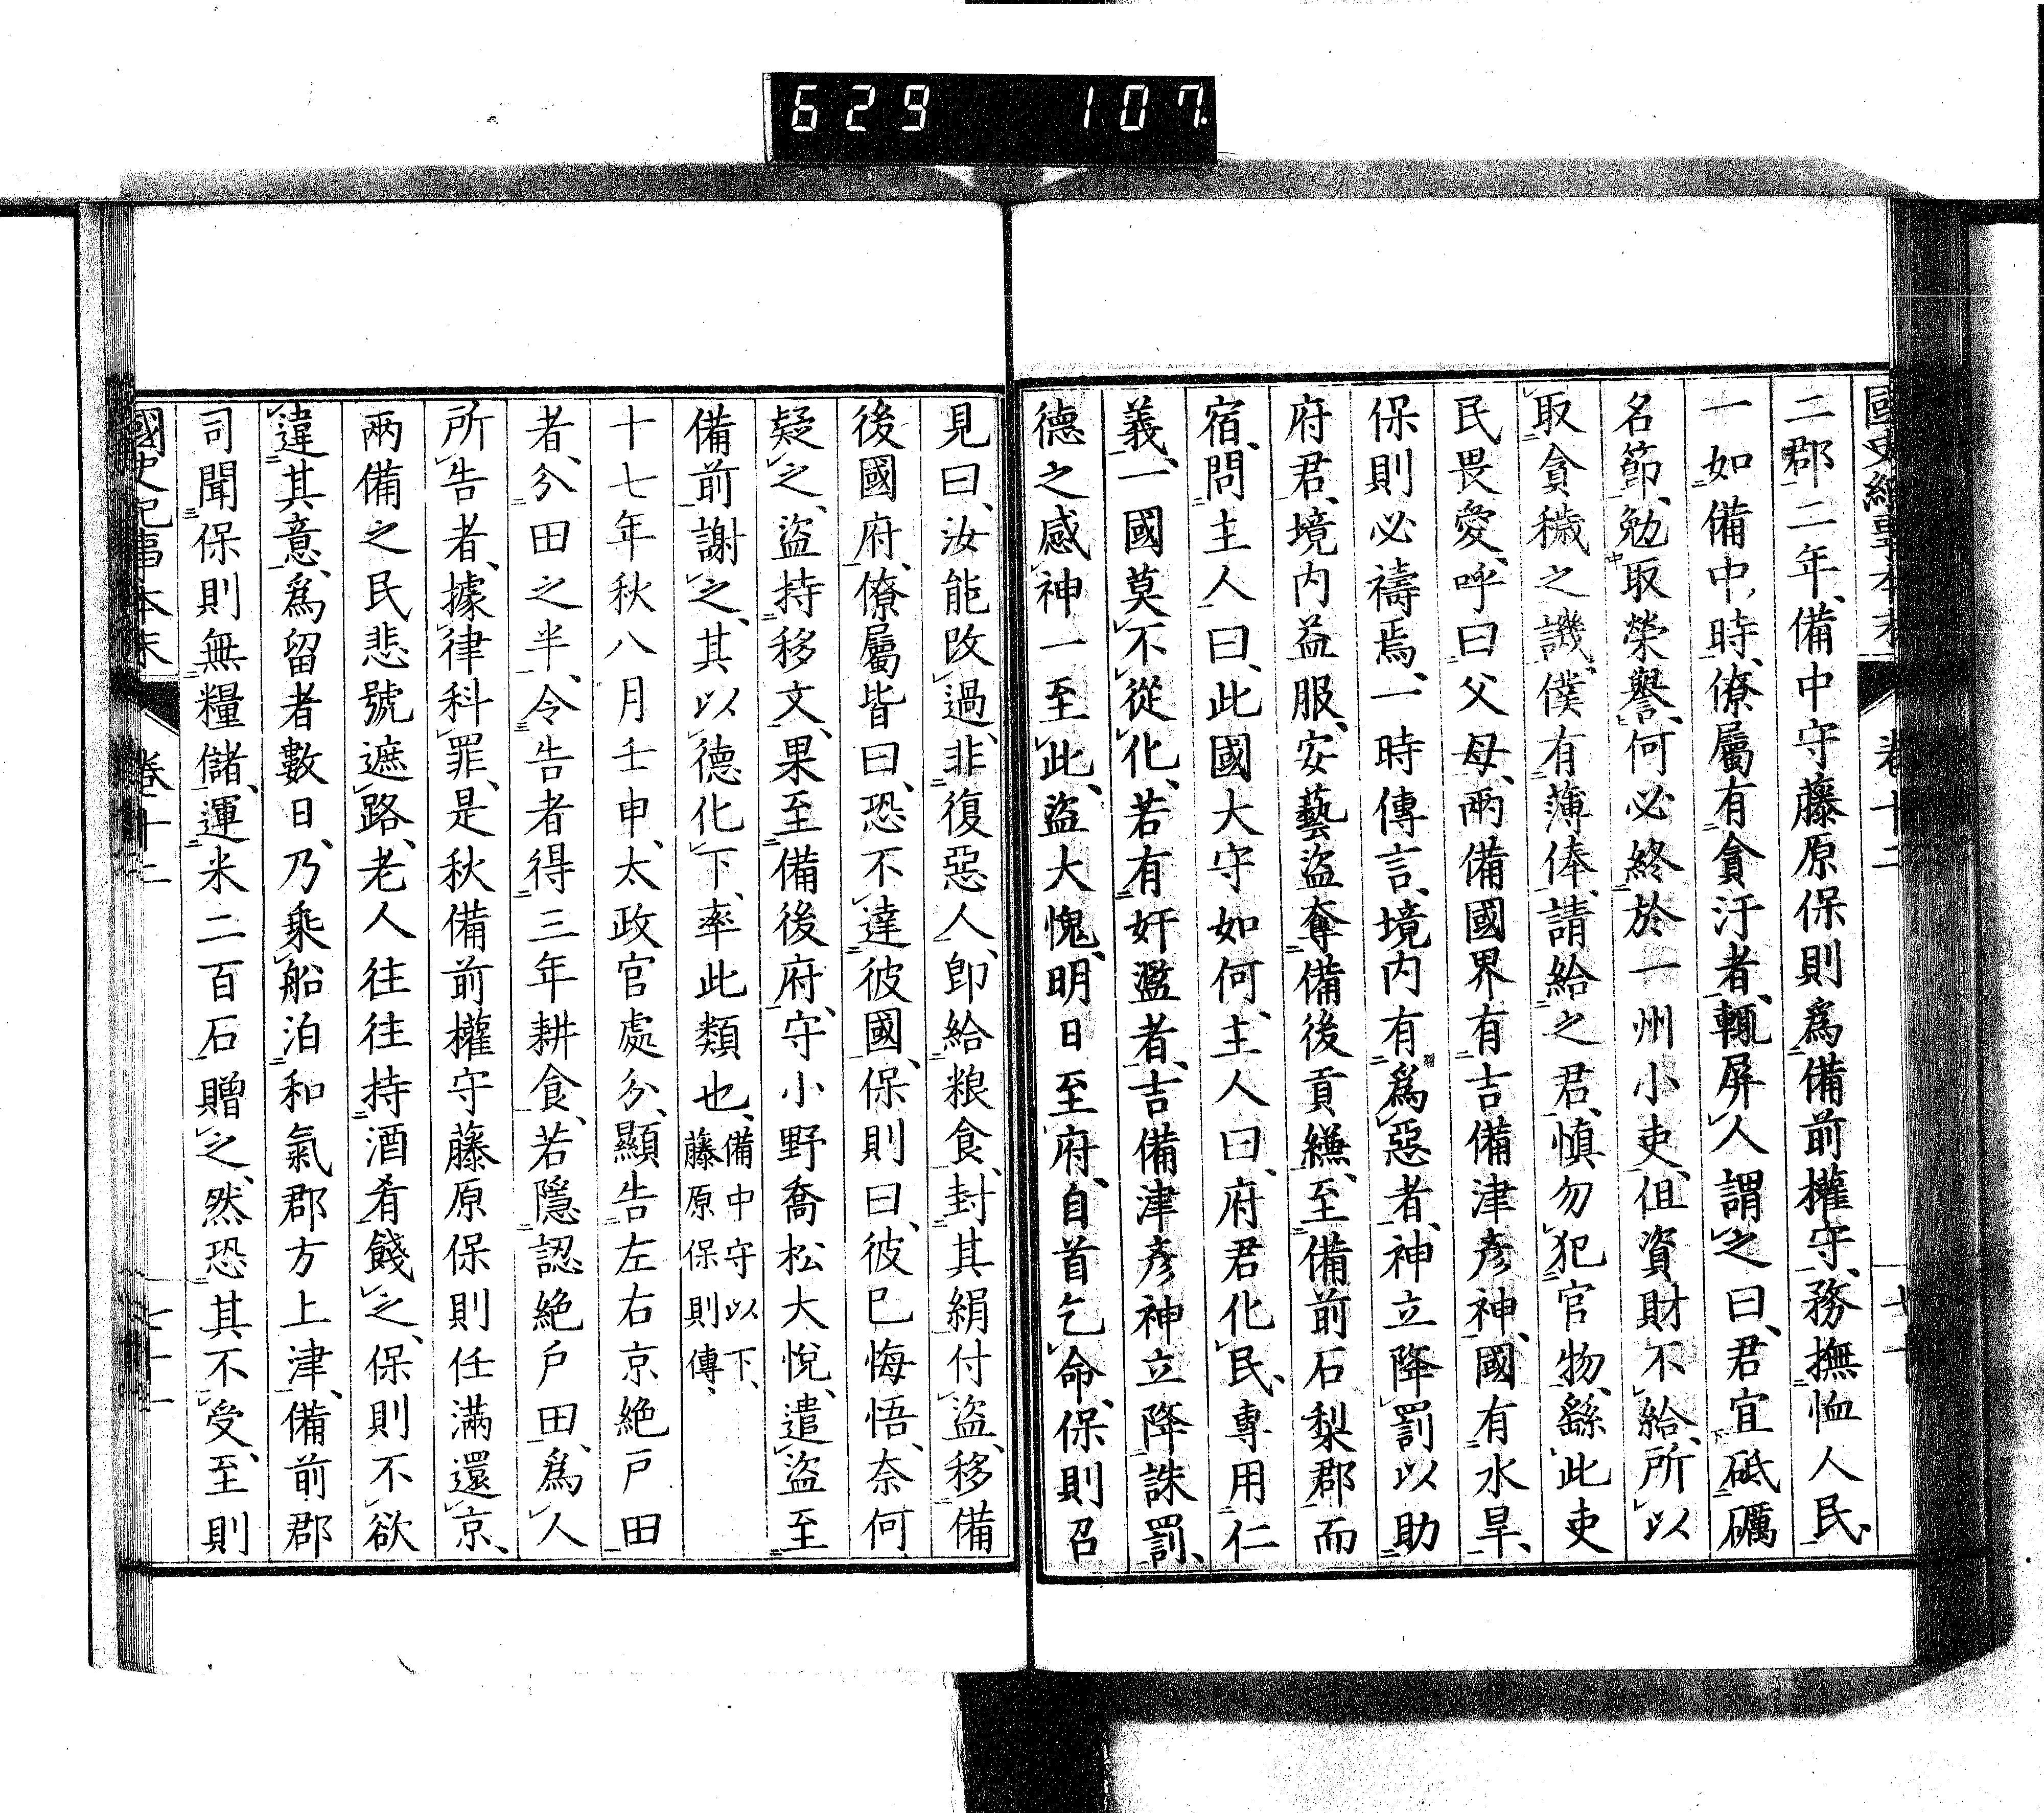 629 107
國史紀事本末 卷十二
二郡二年、備中守藤原保則爲備前權守、務撫恤人民、
一如備中、時僚屬有貪汙者、輒屏人謂之曰、君宜砥礪
名節、勉取榮譽、何必終於一州小吏、但資財不給、所以
取貪穢之譏、僕有薄俸、請給之君、愼勿犯官物、繇此吏
民畏愛、呼曰父母、兩備國界有吉備津彥神、國有水旱、
保則必禱焉、一時傳言、境内有爲惡者、神立降罰以助
府君、境内益服、安藝盜奪備後貢縑、至備前石梨郡而
宿、問主人曰、此國大守如何、主人曰、府君化民、專用仁
義、一國莫不從化、若有奸濫者、吉備津彥神立降誅罰、
德之感神一至此、盜大愧、明日至府、自首乞命、保則召
見曰、汝能改過、非復惡人、卽給粮食、封其絹付盜、移備
後國府、僚屬皆曰、恐不達彼國、保則曰、彼已悔悟、奈何
疑之、盜持移文、果至備後府、守小野喬松大悅、遣盜至
備前謝之、其以德化下、率此類也、備中守以下、藤原保則傳、
十七年秋八月壬申、太政官處分、顯告左右京絶戸田
者、分田之半、令告者得三年耕食、若隱認絶戸田、爲人
所告者、據律科罪、是秋備前權守藤原保則任滿還京、
兩備之民悲號遮路、老人往往持酒肴餞之、保則不欲
違其意、爲留者數日、乃乘船泊和氣郡方上津、備前郡
司聞保則無糧儲、運米二百石贈之、然恐其不受、至則
國史紀事本末 卷十二